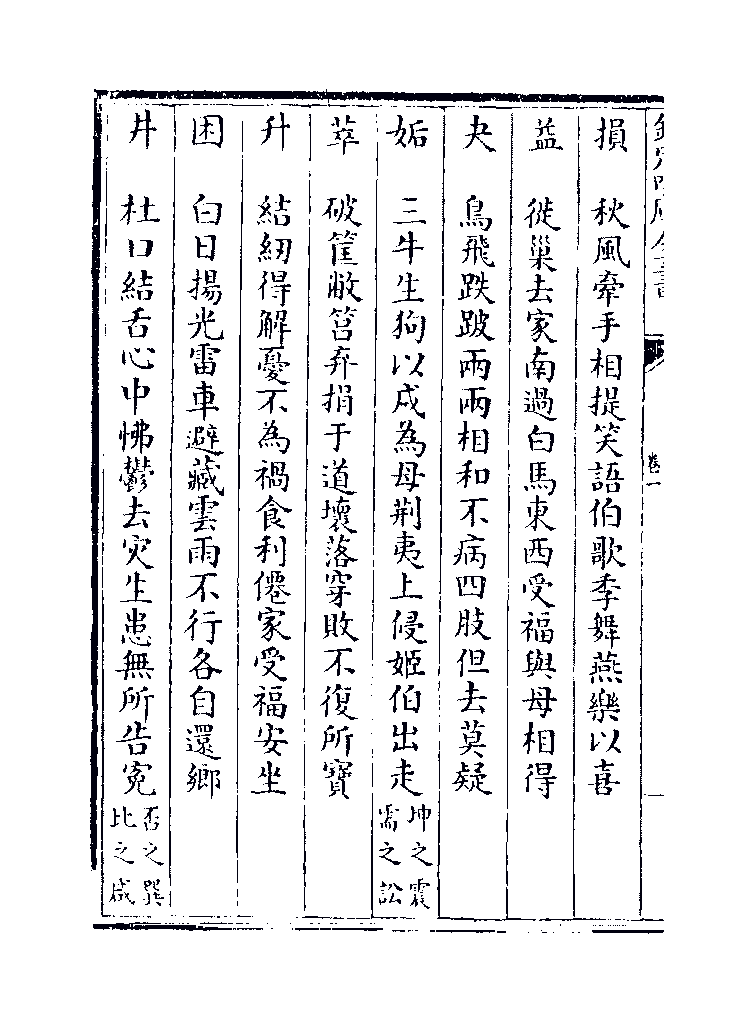 欽定四庫全書
卷一
損 秋風牽手相提笑語伯歌季舞燕樂以喜
益 徙巢去家南過白馬東西受福與母相得
夬 鳥飛跌跛兩兩相和不病四肢但去莫疑
姤 三牛生狗以戍為母荆夷上侵姬伯出走坤之震需之訟
萃 破筐敝筥弃捐于道壞落穿敗不復所寶
升 結紉得解憂不為禍食利僊家受福安坐
困 白日揚光雷車避藏雲雨不行各自還鄉
井 杜口結舌心中怫鬱去災生患無所告寃否之巽比之咸